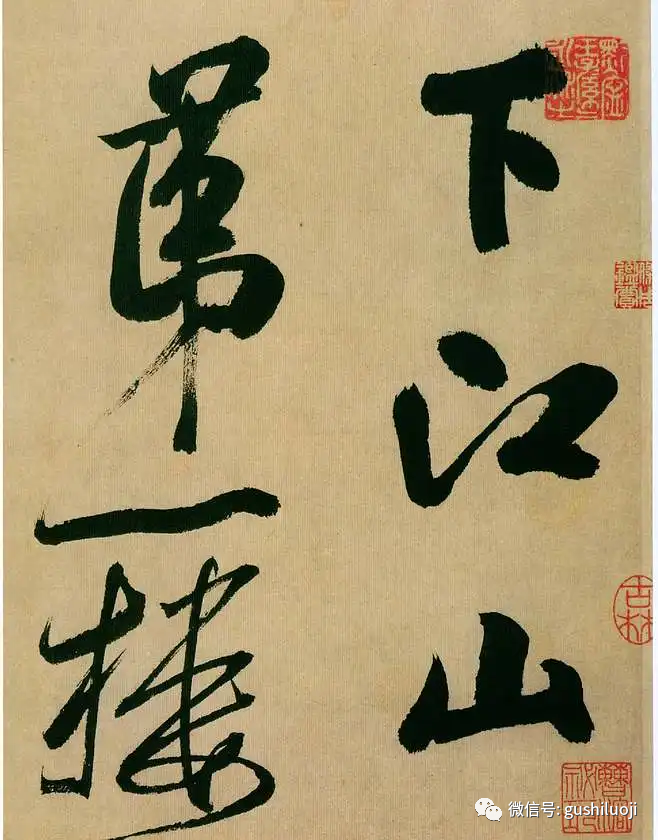 下江山
第一楼
古林
微信号: gushiluoji